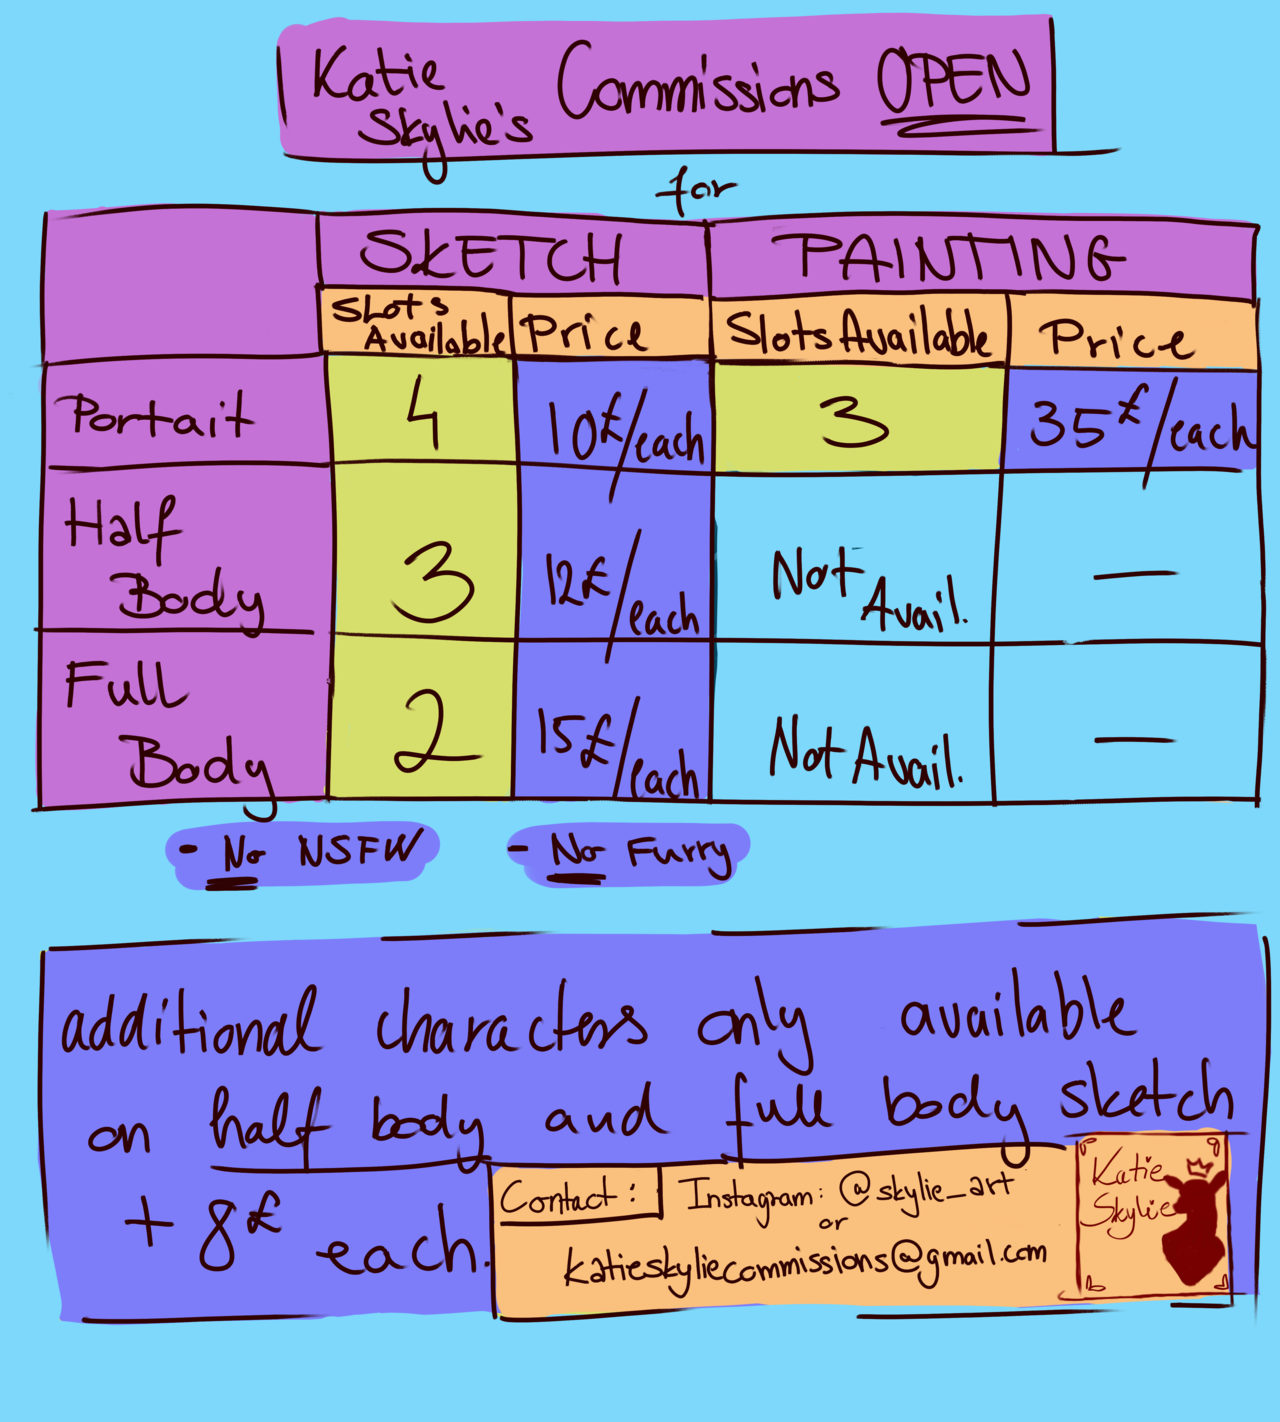 Katie Skylie's Commissions OPEN
for
SKETCH PAINTING
Slots Available Price Slots Available Price
Portait 4 10£/each 3 35£/each
Half Body 3 12£/each Not Avail. —
Full Body 2 15£/each Not Avail. —
- No NSFW - No Furry
additional characters only available
on half body and full body sketch
+ 8£ each.
Contact: Instagram: @skylie_art
or
katieskyliecommissions@gmail.com
Katie
Skylie